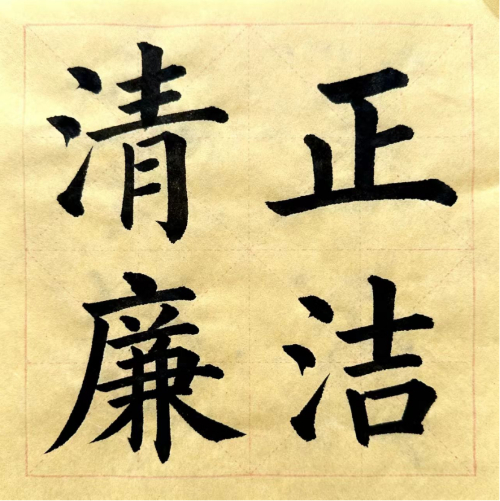 清正
廉洁